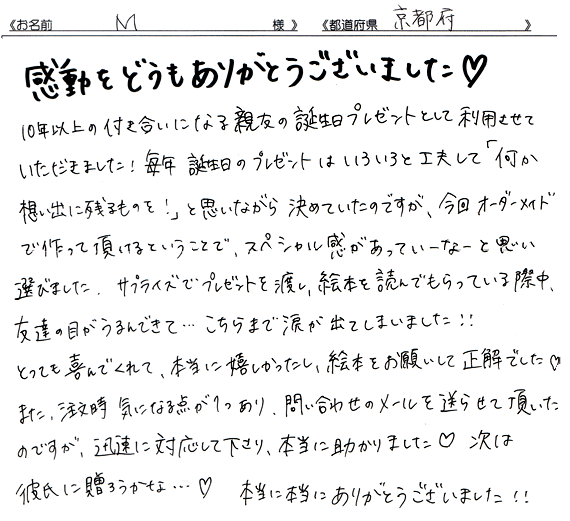 《お名前 M 様》 《都道府県 京都府 》
感動をどうもありがとうございました♡
10年以上の付き合いになる親友の誕生日プレゼントとして利用させて
いただきました！毎年 誕生日のプレゼントは いろいろと工夫して「何か
想い出に残るものを！」と思いながら 決めていたのですが、今回 オーダーメイド
で作って頂けるということで、スペシャル感があっていーなーと思い
選びました。サプライズでプレゼントを渡し、絵本を読んでもらっている際中、
友達の目がうるんできて… こちらまで涙が出てしまいました!!
とっても喜んでくれて、本当に嬉しかったし、絵本をお願いして正解でした♡
また、注文時 気になる点が1つあり、問い合わせのメールを送らせて頂いた
のですが、迅速に対応して下さり、本当に助かりました♡ 次は
彼氏に贈ろうかな…♡ 本当に本当にありがとうございました!!